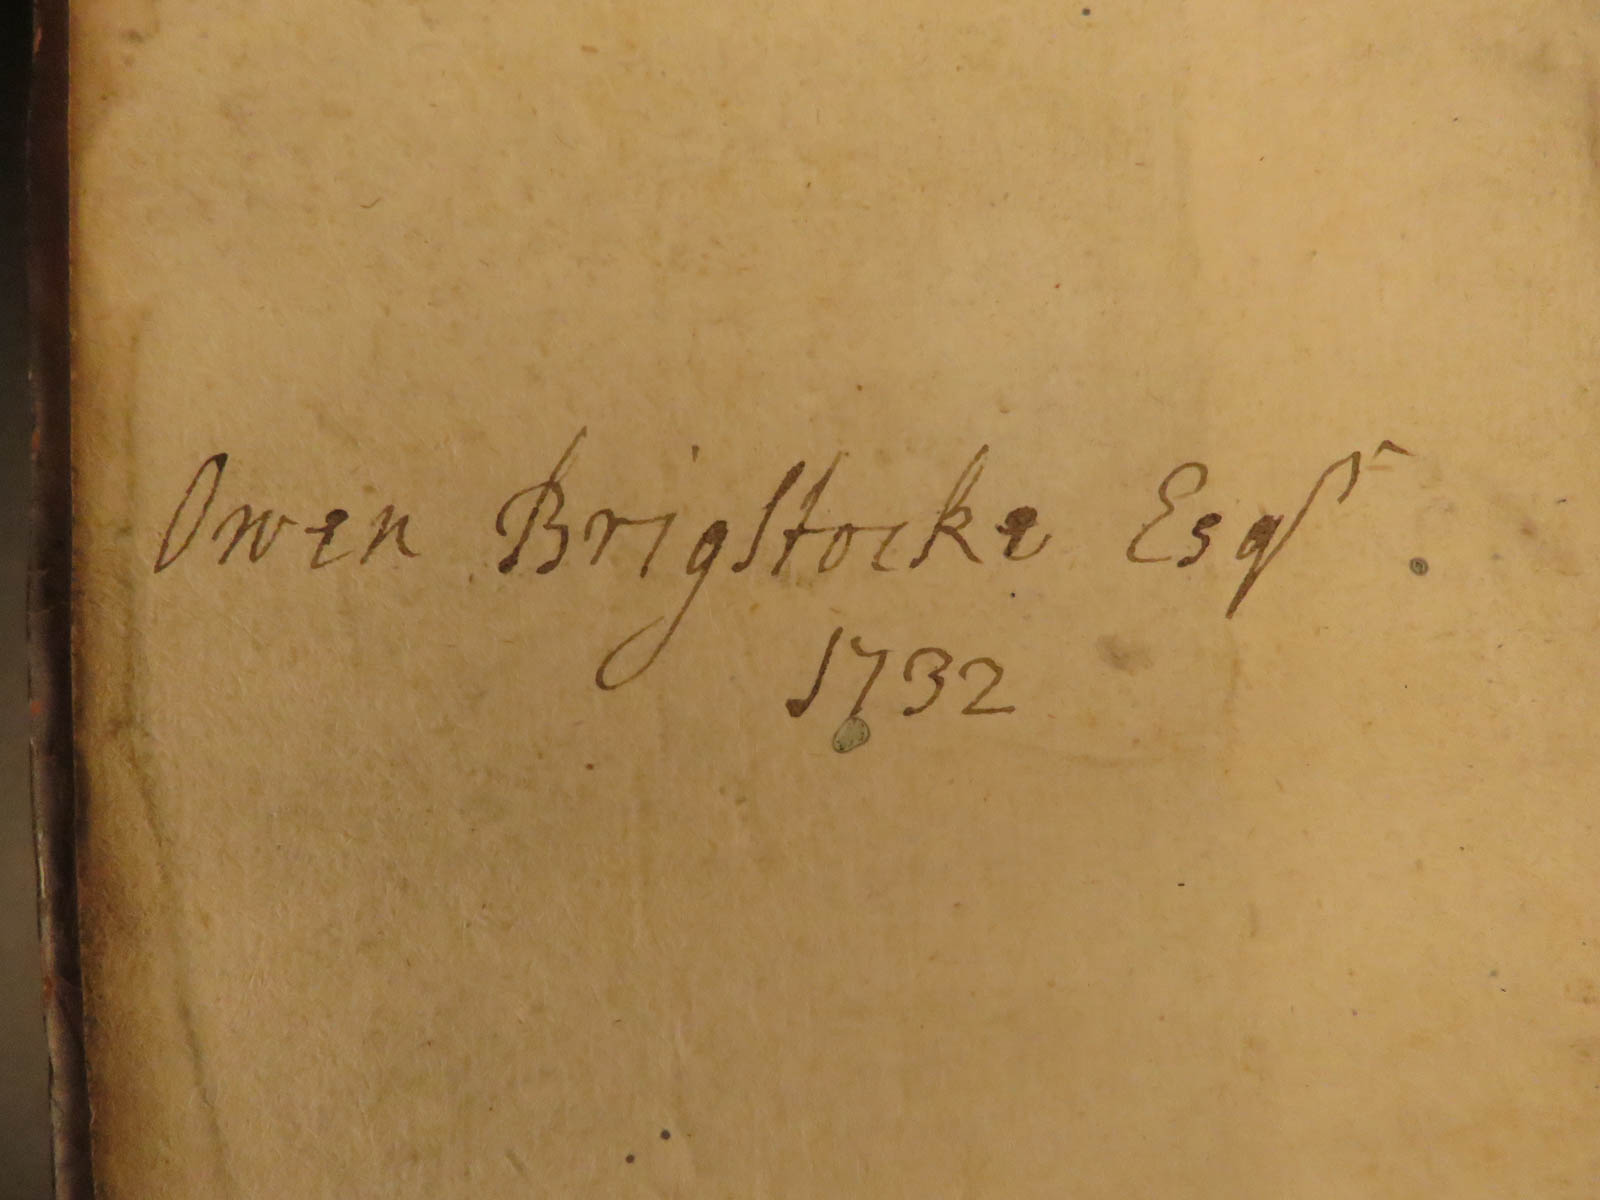 Owen Brigstocke Esqr.
1732